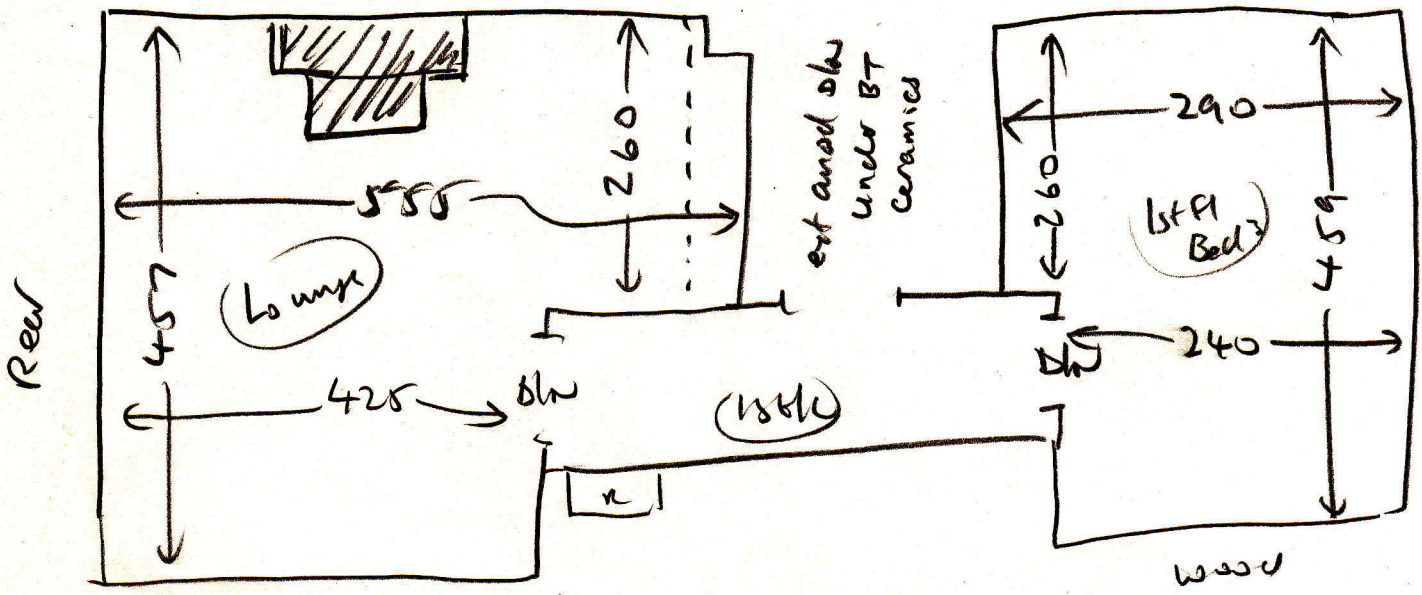 Rear
457
555
260
Lounge
425
D/W
ext anod D/W
under BT
ceramics
R
290
260
1st Fl
Bed 3
459
240
D/W
wood